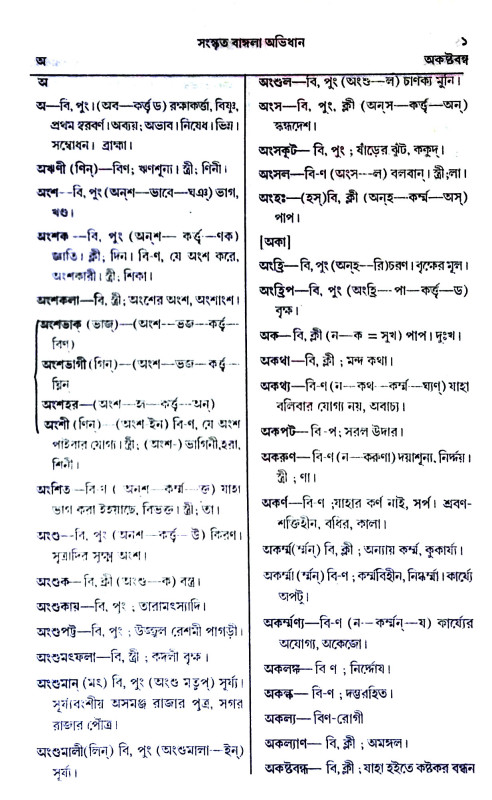 সংস্কৃত বাঙ্গলা অভিধান
১
অ
অকষ্টবন্ধ
অ
অ—বি, পুং। (অব—কর্ত্তৃ ড) রক্ষাকর্ত্তা, বিষ্ণু,
প্রথম স্বরবর্ণ। অব্যয়; অভাব। নিষেধ। ভিন্ন।
সম্বোধন। ব্রাহ্মা।
অঋণী (ণিন্)—বিণ; ঋণশূন্য। স্ত্রী; ণিনী।
অংশ—বি, পুং (অন্‌শ—ভাবে—ঘঞ্) ভাগ,
খণ্ড।
অংশক —বি, পুং (অন্‌শ— কর্ত্তৃ —ণক)
জ্ঞাতি। ক্লী; দিন। বি-ণ, যে অংশ করে,
অংশকারী। স্ত্রী; শিকা।
অংশকলা—বি, স্ত্রী; অংশের অংশ, অংশাংশ।
অংশভাক্ (ভাজ্)—(অংশ—ভজ—কর্ত্তৃ—
বিণ্)
অংশভাগী (গিন্)—(অংশ—ভজ—কর্ত্তৃ—
ঘিন
অংশহর—(অংশ—হৃ—কর্ত্তৃ—অন্)
অংশী (ণিন্)—(অংশ ইন) বি-ণ, যে অংশ
পাইবার যোগ্য। স্ত্রী; (অংশ-) ভাগিনী,হরা,
শিনী।
অংশিত —বি-ণ ( অনশ—কর্ম্ম—ক্ত) যাহা
ভাগ করা হইয়াছে, বিভক্ত। স্ত্রী; তা।
অংশু—বি, পুং (অনশ—কর্ত্তৃ— উ) কিরণ।
সূত্রাদির সূক্ষ্ম অংশ।
অংশুক— বি, ক্লী (অংশু—ক) বস্ত্র।
অংশুকায়—বি, পুং ; তারামৎস্যাদি।
অংশুপট্ট—বি, পুং ; উজ্জ্বল রেশমী পাগড়ী।
অংশুমৎফলা—বি, স্ত্রী ; কদলী বৃক্ষ।
অংশুমান্ (মৎ) বি, পুং (অংশু মতুপ্) সূর্য্য।
সূর্য্যবংশীয় অসমঞ্জ রাজার পুত্র, সগর
রাজার পৌত্র।
অংশুমালী(লিন্) বি, পুং (অংশুমালা—ইন্)
সূর্য্য।
অংশুল—বি, পুং (অংশু—ল) চাণক্য মুনি।
অংস—বি, পুং, ক্লী (অন্‌স—কর্ত্তৃ—অন্)
স্কন্ধদেশ।
অংসকূট— বি, পুং ; ষাঁড়ের ঝুঁট, ককুদ্।
অংসল—বি-ণ (অংস—ল) বলবান্। স্ত্রী;লা।
অংহঃ—(হস্)বি, ক্লী (অন্‌হ—কর্ম্ম—অস্)
পাপ।
[অকা]
অংহ্রি—বি, পুং (অন্‌হ—রি)চরণ। বৃক্ষের মূল।
অংহ্রিপ—বি, পুং (অংহ্রি—পা—কর্ত্তৃ—ড)
বৃক্ষ।
অক—বি, ক্লী (ন—ক = সুখ) পাপ। দুঃখ।
অকথা—বি, ক্লী ; মন্দ কথা।
অকথ্য—বি-ণ (ন—কথ—কর্ম্ম—ঘ্যণ্) যাহা
বলিবার যোগ্য নয়, অবাচ্য।
অকপট—বি -প; সরল উদার।
অকরুণ—বি-ণ (ন—করুণা) দয়াশূন্য, নির্দ্দয়।
স্ত্রী ; ণা।
অকর্ণ—বি-ণ ;যাহার কর্ণ নাই, সর্প। শ্রবণ-
শক্তিহীন, বধির, কালা।
অকর্ম্ম(র্ম্মন্) বি, ক্লী ; অন্যায় কর্ম্ম, কুকার্য্য।
অকর্ম্মা (র্ম্মন্) বি-ণ ; কর্ম্মবিহীন, নিষ্কর্ম্মা। কার্য্যে
অপটু।
অকর্ম্মণ্য—বি-ণ (ন- কর্ম্মন্—য) কার্য্যের
অযোগ্য, অকেজো।
অকলঙ্ক— বি ণ ; নির্দ্দোষ।
অকল্ক— বি-ণ ; দম্ভরহিত।
অকল্য— বিণ-রোগী
অকল্যাণ— বি, ক্লী ; অমঙ্গল।
অকষ্টবন্ধ— বি, ক্লী ; যাহা হইতে কষ্টকর বন্ধন